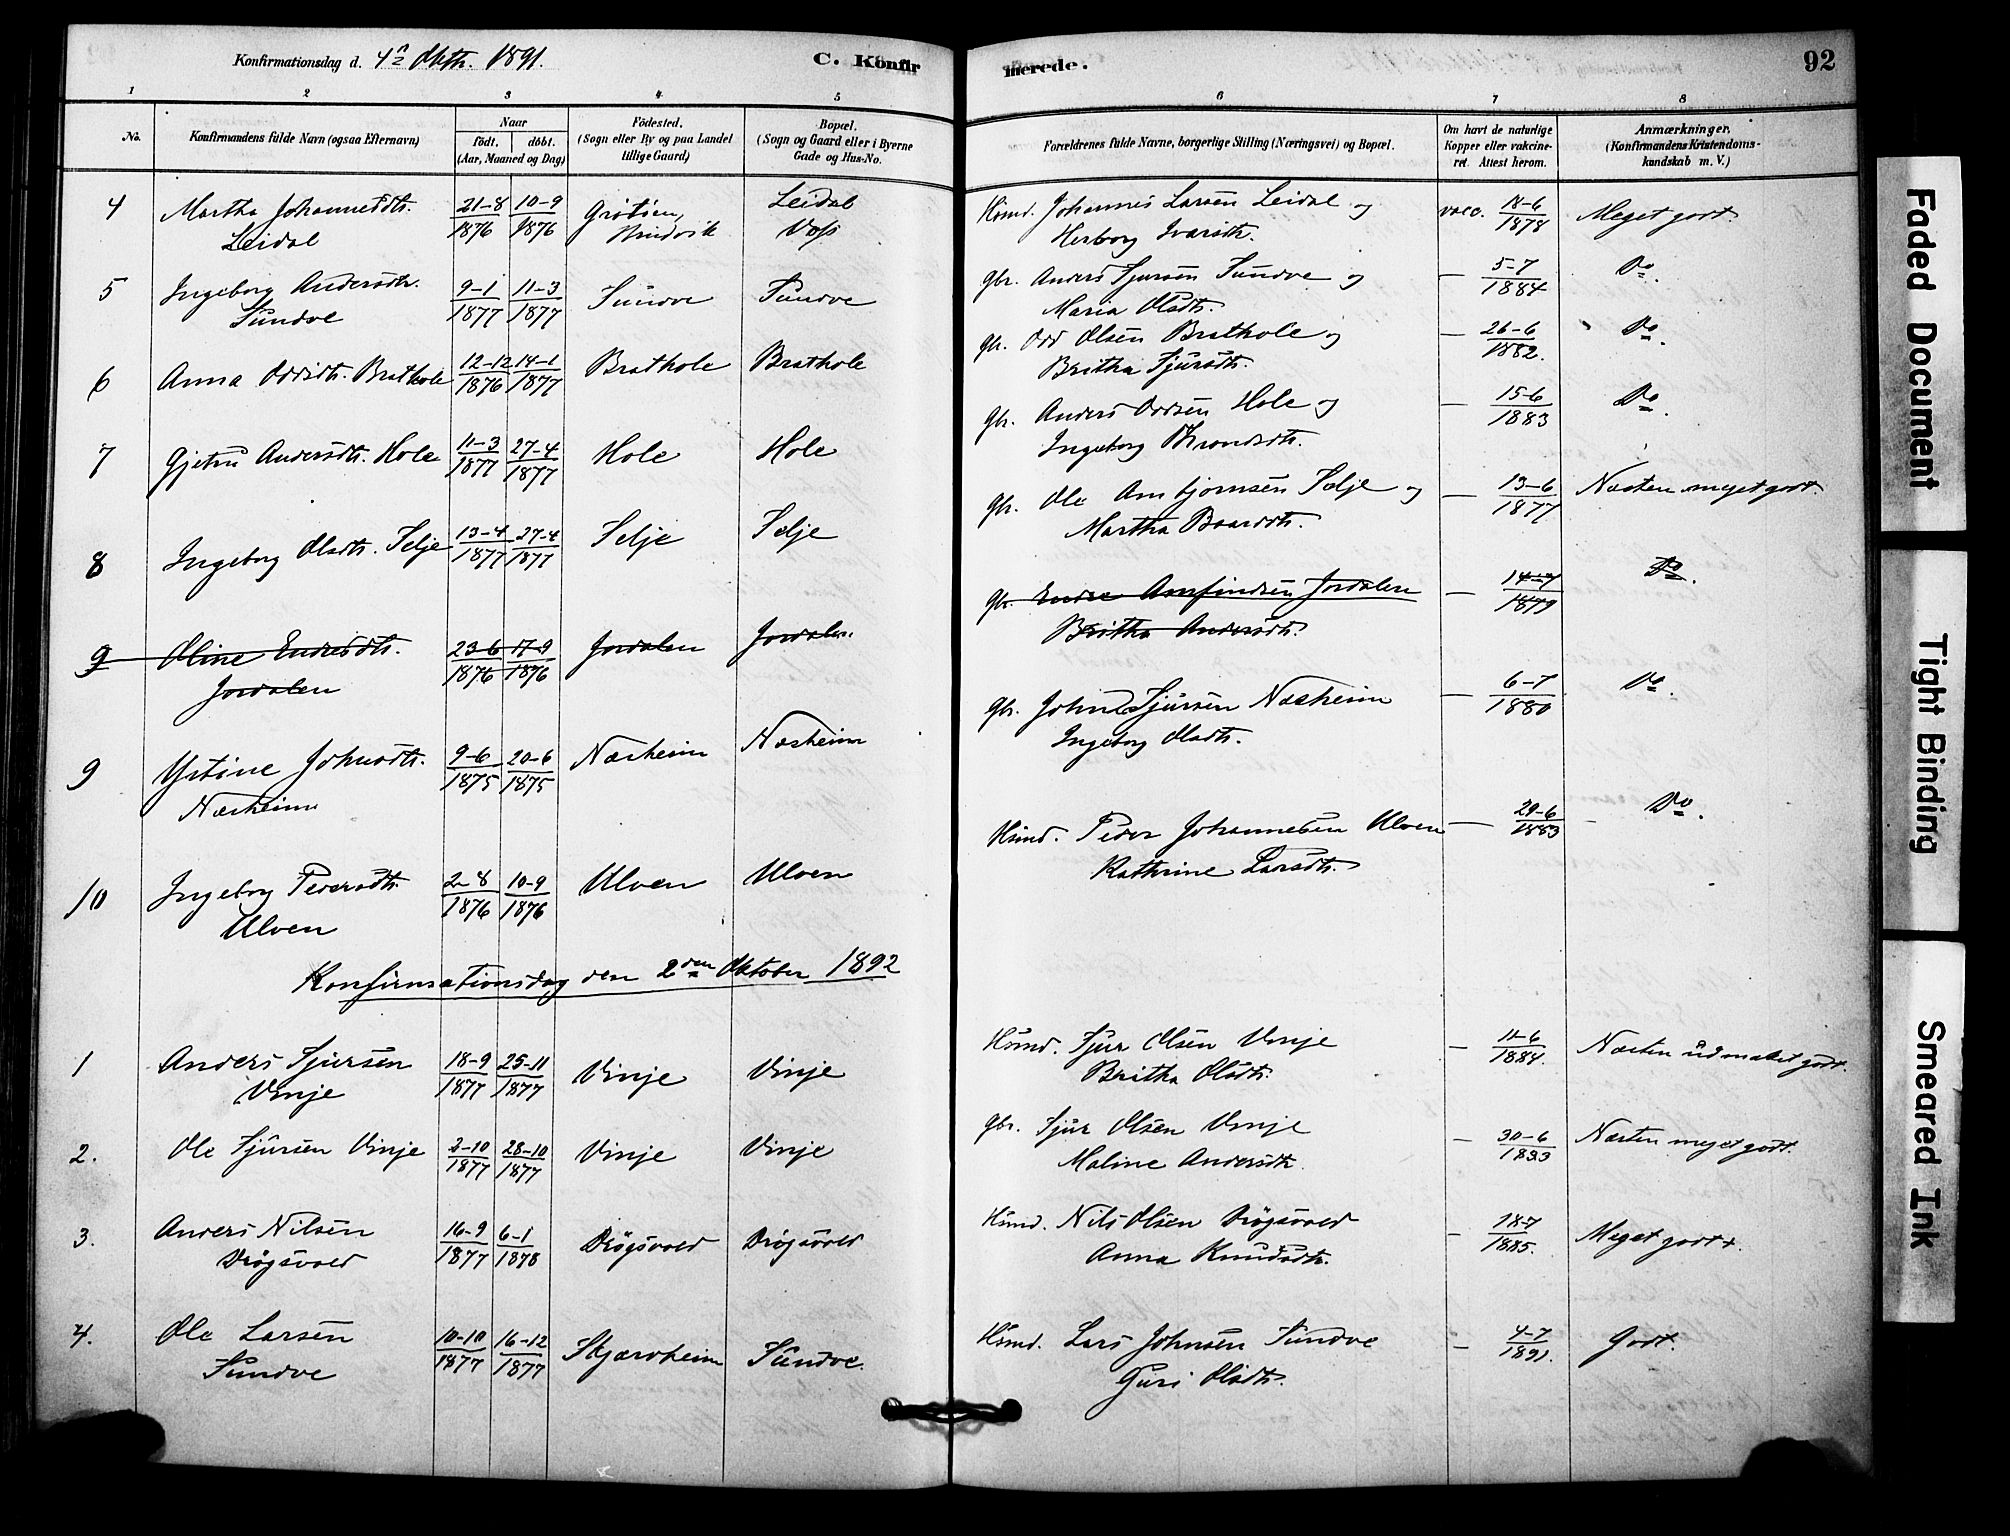 Konfirmationsdag d. 4n Oktbr. 1891. C. Konfirmerede. 92
1 2 3 4 5 6 7 8
No. Konfirmandens fulde Navn (ogsaa Efternavn) Naar født. døbt. (Aar, Maaned og Dag) Fødested. (Sogn eller By og paa Landet tillige Gaard) Bopæl. (Sogn og Gaard eller i Byerne Gade og Hus-No. Forældrenes fulde Navne, borgerlige Stilling (Næringsvei) og Bopæl. Om havt de naturlige Kopper eller vakcineret. Attest herom. Anmærkninger. (Konfirmandens Kristendomskundskab m. V.)
4 Martha Johannesdtr. 21-8 1876 10-9 1876 Leidal Husmd. Johannes Larsen Leidal og vacc. 18-6 1878 Meget godt.
Leidal Voss Herborg Ivarsdtr.
5 Ingeborg Andersdtr. 9-1 1877 11-3 1877 Sundve Sundve gbr. Anders Sjursen Sundve og — 5-7 1884 Do.
Sundve Maria Olsdtr.
6 Anna Oddsdtr. Brathole 12-12 1876 14-1 1877 Brathole Brathole gbr. Odd Olsen Brathole og — 26-6 1882. Do.
Britha Sjursdtr.
7 Gjetru Andersdtr. Hole 11-3 1877 27-4 1877 Hole Hole gbr. Anders Oddsen Hole og — 15-6 1883 Do.
Ingeborg Throndsdtr.
8 Ingeborg Olsdtr. Selje 13-4 1877 27-4 1877 Selje Selje gbr. Ole Arnbjørnsen Selje og — 13-6 1877 Næsten meget godt.
Martha Baardsdtr.
9 Oline Endresdtr. 23-6 1876 17-9 1876 Jordalen Jordalen. gbr. Endre Arnfindsen Jordalen — 14-7 1879 Do.
Jordalen Britha Andersdtr.
9 Ystine Johnsdtr. 9-6 1875 20-6 1875 Næsheim Næsheim gbr. John Sjursen Næsheim — 6-7 1880 Do.
Næsheim Ingeborg Olsdtr.
10 Ingeborg Pedersdtr. 2-8 1876 10-9 1876 Ulven Ulven Husmd. Peder Johannesen Ulven — 29-6 1883 Do.
Ulven Kathrine Larsdtr.
Konfirmationsdag den 2den Oktober 1892
1 Anders Sjursen 18-9 1877 25-11 1877 Vinje Vinje Husmd. Sjur Olsen Vinje — 11-6 1884. Næsten udmærket godt.
Vinje Britha Olsdtr.
2. Ole Sjursen Vinje 2-10 1877 28-10 1877 Vinje Vinje gbr. Sjur Olsen Vinje — 30-6 1883 Næsten meget godt.
Maline Andersdtr.
3. Anders Nilsen 16-9 1877 6-1 1878 Drøgsvold Drøgsvold Husmd. Nils Olsen Drøgsvold — 18-7 1885. Meget godt.
Drøgsvold Anna Knudsdtr.
4. Ole Larsen 10-10 1877 16-12 1877 Skjærvheim Sundve. Husmd. Lars Johnsen Sundve — 4-7 1891. Godt.
Sundve Guri Olsdtr.
Faded Document
Tight Binding
Smeared Ink